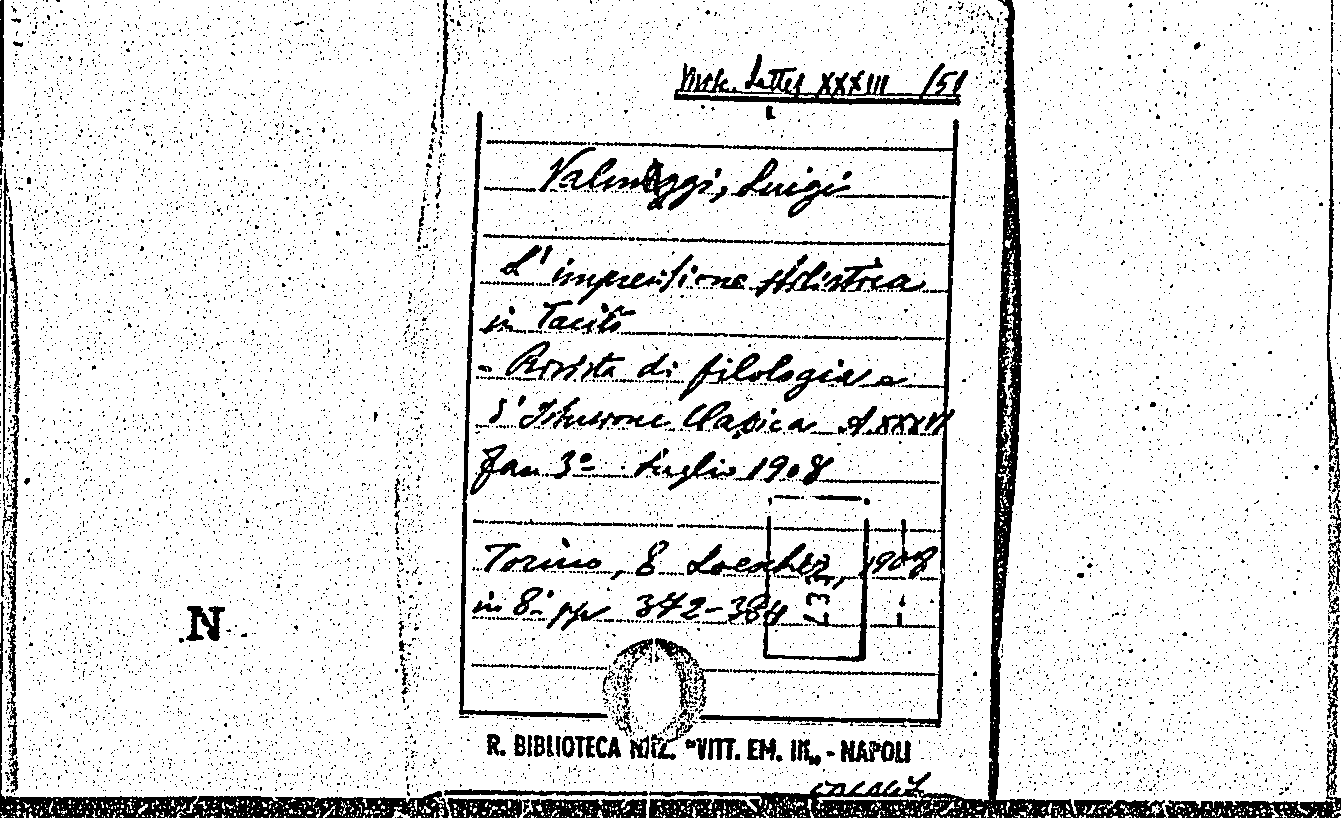 XXXIII /51
Valmaggi, Luigi
L'imprecisione stilistica
in Tacito
- Rivista di filologia e
d'Istruzione Classica A. XXXVI
Fasc 3º Luglio 1908
Torino, E Loescher, 1908
in 8º pp 372-384
N
R. BIBLIOTECA NAZ. "VITT. EM. III„ - NAPOLI